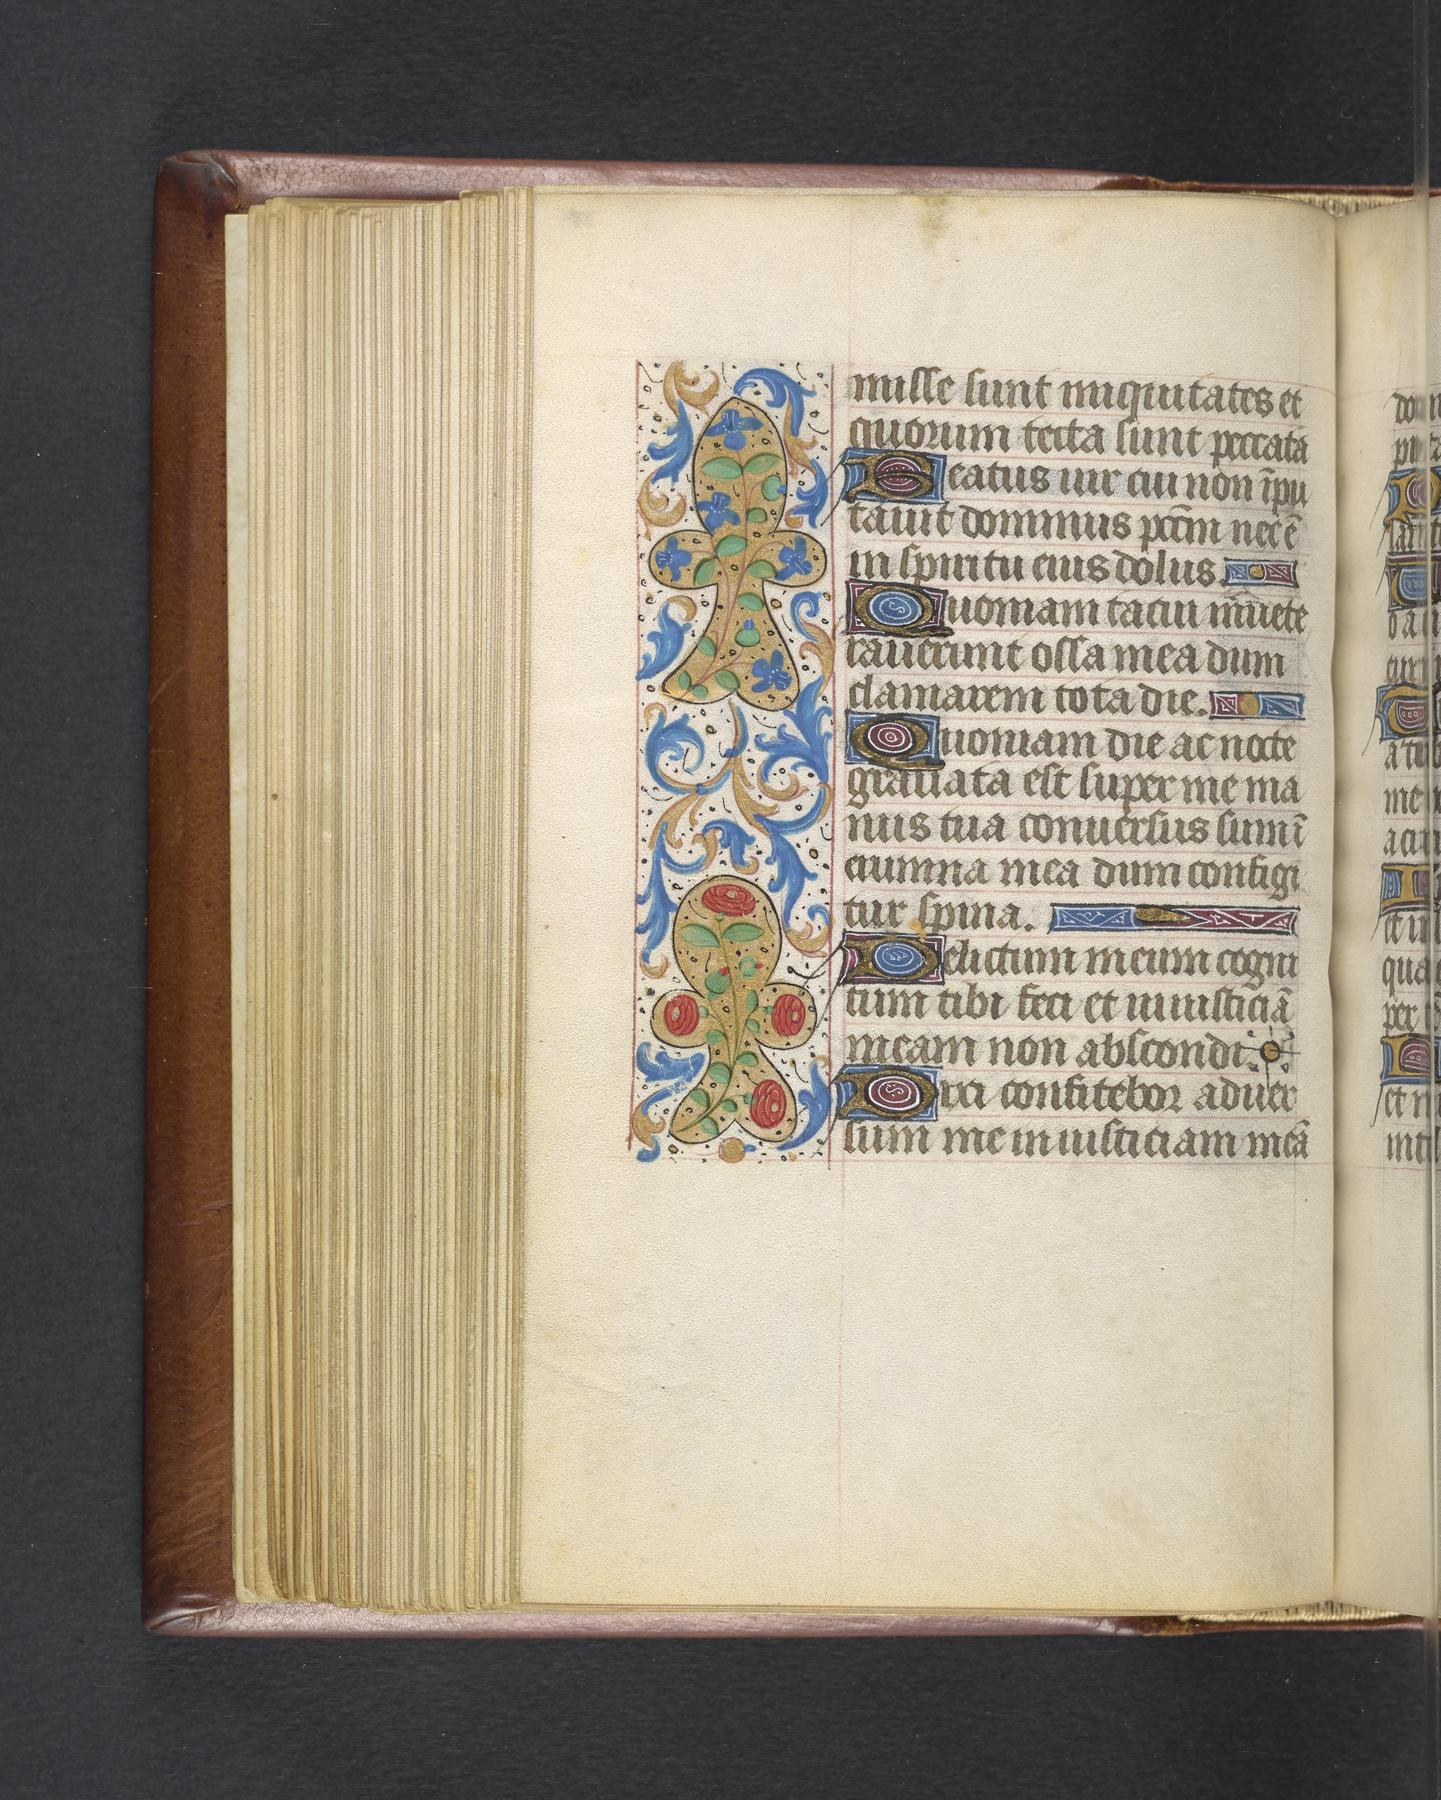 misse sunt iniquitates et
quorum tecta sunt peccata
Beatus uir cui non īpu
tauit dominus pctm̄ nec ē
in spiritu eius dolus.
Quoniam tacui īuete
rauerunt ossa mea dum
clamarem tota die.
Quoniam die ac nocte
grauata est super me ma
nus tua conuersus sum ī
erumna mea dum configi
tur spina.
Delictum meum cogni
tum tibi feci et iniusticiā
meam non abscondi.
Dixi confitebor aduer
sum me iniusticiam meā